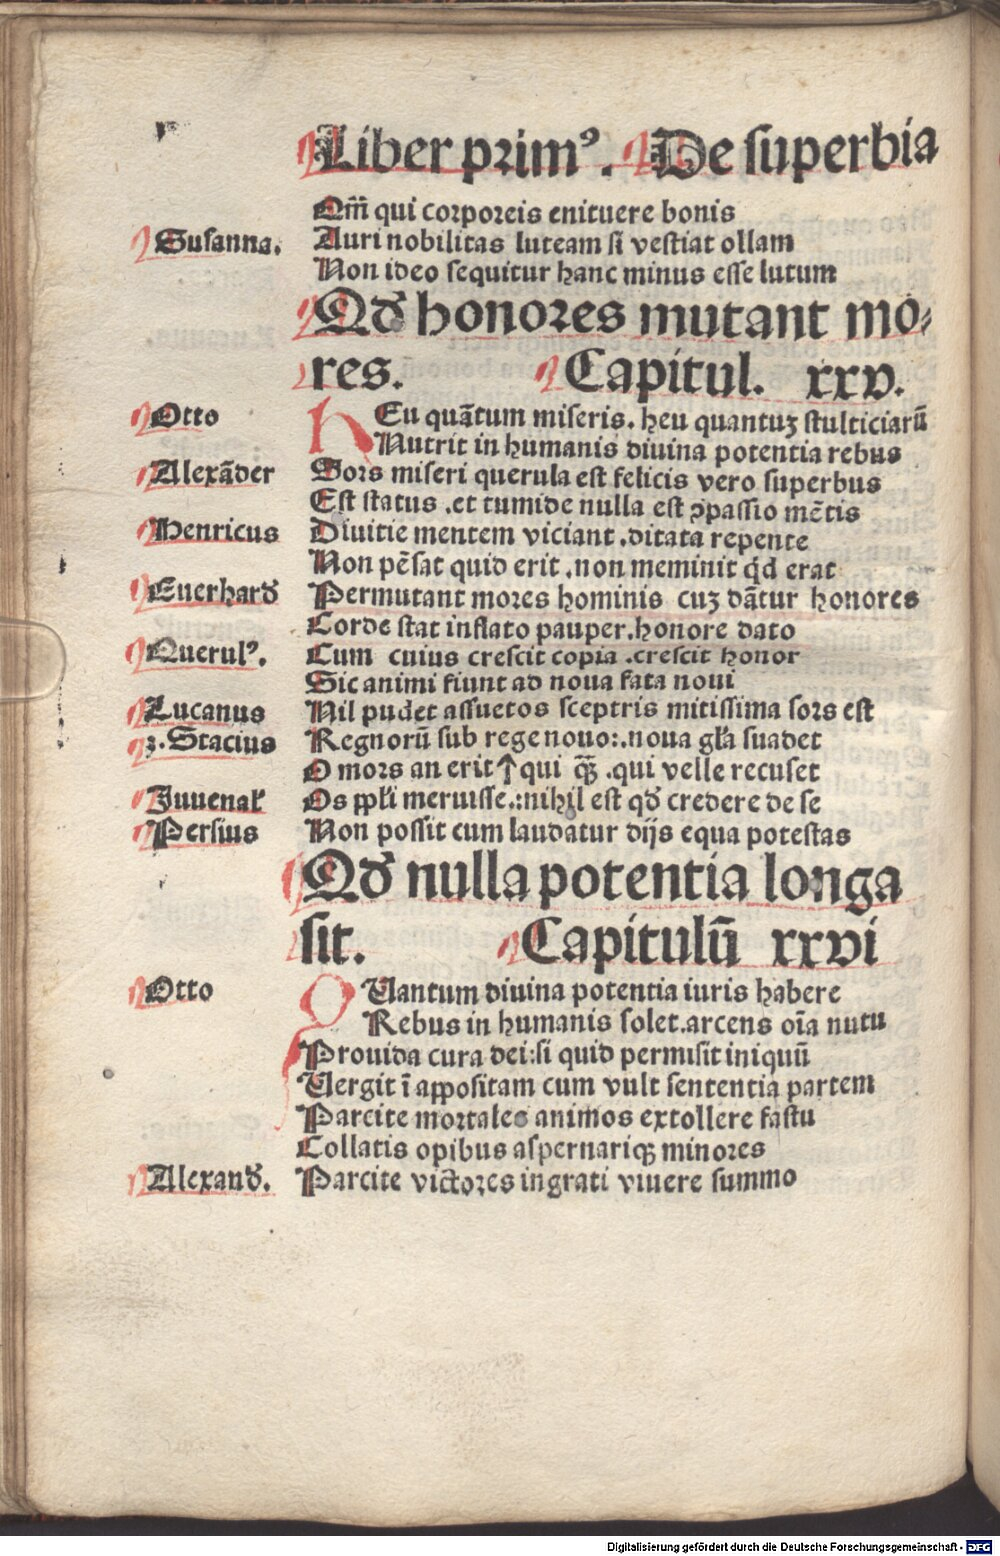 Liber primꝰ. De superbia
Om̅ qui corporeis enituere bonis
Susanna. Auri nobilitas luteam si vestiat ollam
Non ideo sequitur hanc minus esse lutum
Qd honores mutant mo-
res. Capitul. xxv.
Otto HEu quātum miseris. heu quantuꝫ stulticiarū
Nutrit in humanis divina potentia rebus
Alexāder Sors miseri querula est felicis vero superbus
Est status .et tumide nulla est ꝯpassio mētis
Henricus Divitie mentem viciant .ditata repente
Non pēsat quid erit .non meminit qd erat
Euerhard Permutant mores hominis cuꝫ dātur honores
Corde stat inflato pauper.honore dato
Querulꝰ. Cum cuius crescit copia .crescit honor
Sic animi fiunt ad noua fata noui
Lucanus Nil pudet assuetos sceptris mitissima sors est
⁊. Stacius Regnorū sub rege nouo:.noua gl̄a suadet
O mors an erit qui .qui velle recuset
Juuenal Os ppli meruisse.:nihil est qd credere de se
Persius Non possit cum laudatur dijs equa potestas
Qd nulla potentia longa
sit. Capitulū xxvi
Otto QUantum diuina potentia iuris habere
Rebus in humanis solet.arcens oīa nutu
Prouida cura dei:si quid permisit iniquū
Uergit ī appositam cum vult sententia partem
Parcite mortales animos extollere fastu
Collatis opibus aspernariqꝫ minores
Alexand. Parcite victores ingrati viuere summo
Digitalisierung gefördert durch die Deutsche Forschungsgemeinschaft - DFG